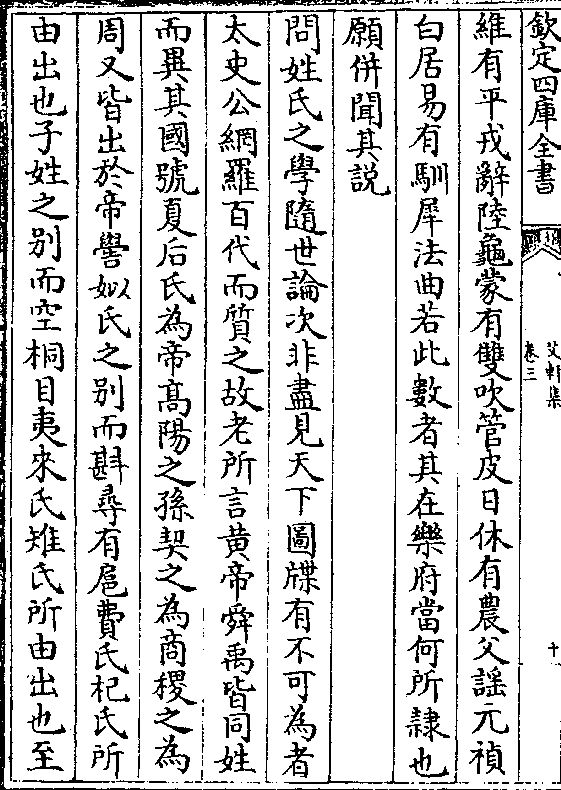 欽定四庫全書
艾軒集
卷三
十
維有平戎辭陸龜蒙有雙吹管皮日休有農父謡元禎
白居易有馴犀法曲若此數者其在樂府當何所隷也
願併聞其説
問姓氏之學隨世論次非盡見天下圖牒有不可為者
太史公網羅百代而質之故老所言黄帝舜禹皆同姓
而異其國號夏后氏為帝髙陽之孫契之為商稷之為
周又皆出於帝嚳姒氏之别而斟尋有扈費氏杞氏所
由出也子姓之别而空桐目夷來氏雉氏所由出也至